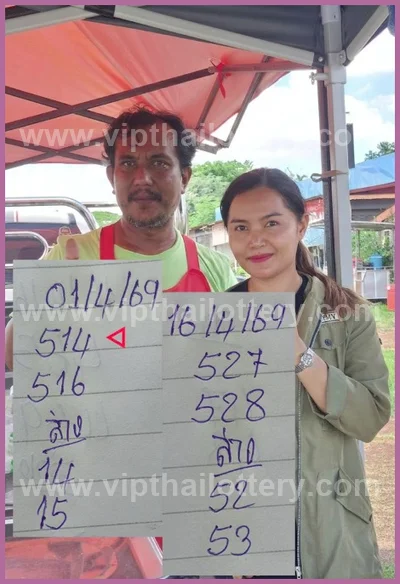 www.vipthailottery.co
01/4/69
514
516
ล่าง
14
15
16/4/69
527
528
ล่าง
52
53
www.vipthailottery.com
www.vipthailottery.com